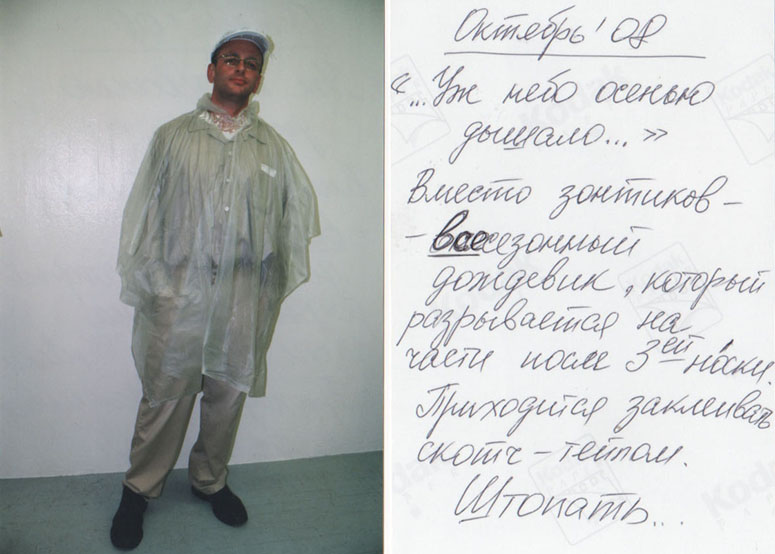 Октябрь '08
"...Уж небо осенью
дышало..."
Вместо зонтиков -
- всесезонный
дождевик, который
разрывается на
части после 3ей носки.
Приходится заклеивать
скотч-тейпом.
Штопать...